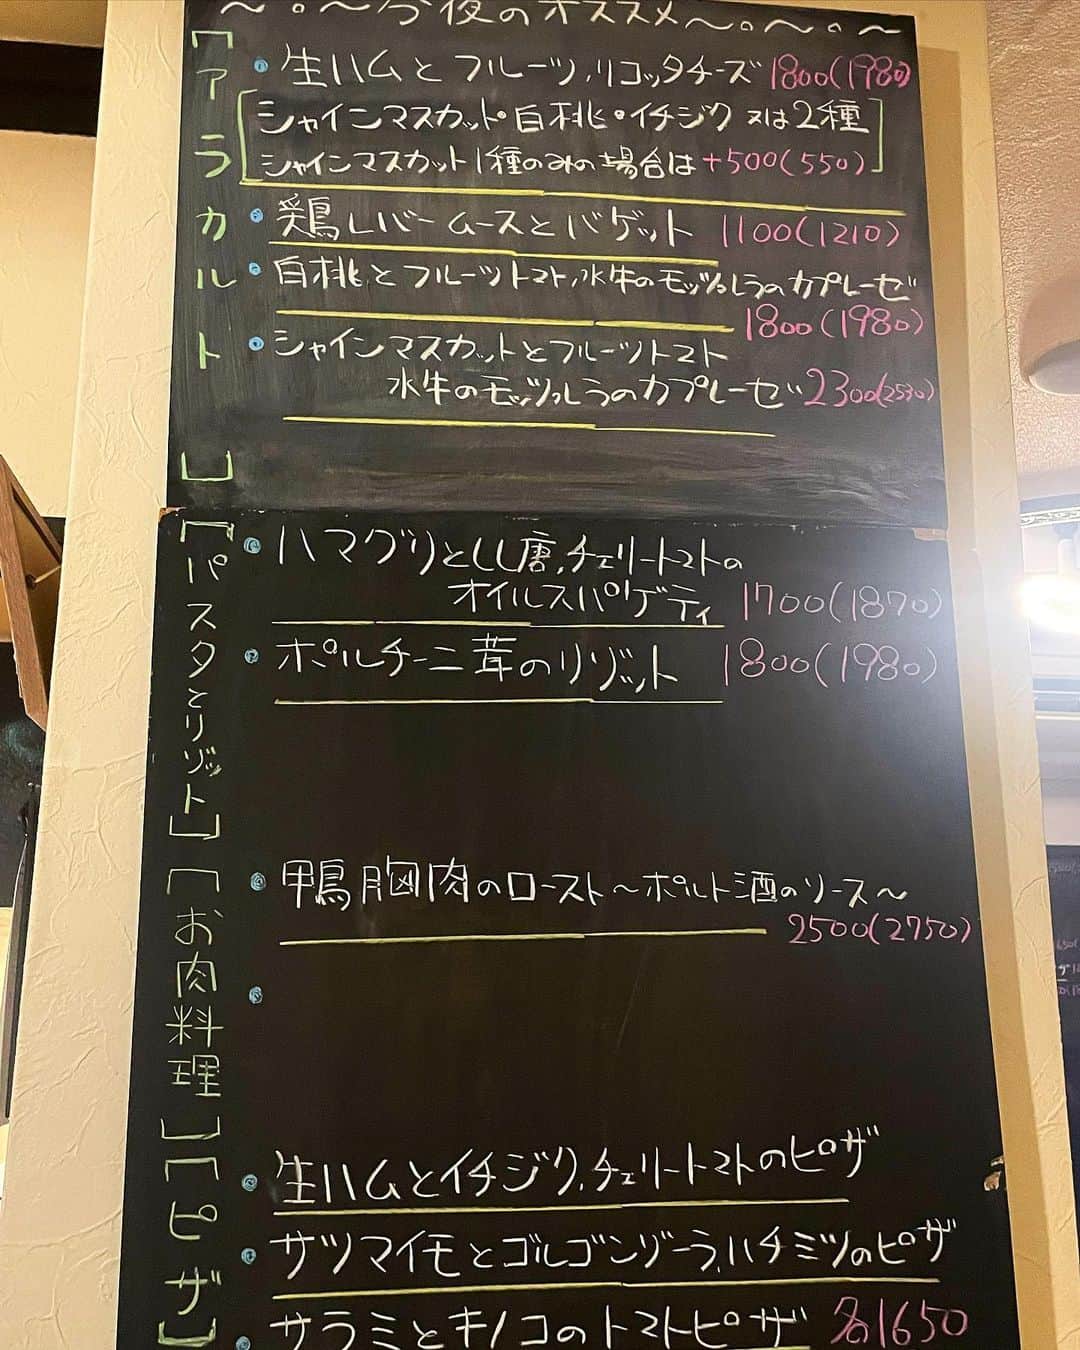 ～。～今夜のオススメ～。～。～
[アラカルト]
・生ハムとフルーツ,リコッタチーズ 1800(1980)
[シャインマスカット・白桃・イチジク 又は2種
シャインマスカット1種のみの場合は+500(550)]
・鶏レバームースとバゲット 1100(1210)
・白桃とフルーツトマト,水牛のモッツァレラのカプレーゼ
1800(1980)
・シャインマスカットとフルーツトマト
水牛のモッツァレラのカプレーゼ 2300(2530)
[パスタとリゾット]
・ハマグリとしし唐,チェリートマトの
オイルスパゲティ 1700(1870)
・ポルチーニ茸のリゾット 1800(1980)
[お肉料理]
・鴨胸肉のロースト～ポルト酒のソース～
2500(2750)
[ピザ]
・生ハムとイチジク,チェリートマトのピザ
・サツマイモとゴルゴンゾーラ,ハチミツのピザ
・サラミとキノコのトマトピザ 各1650